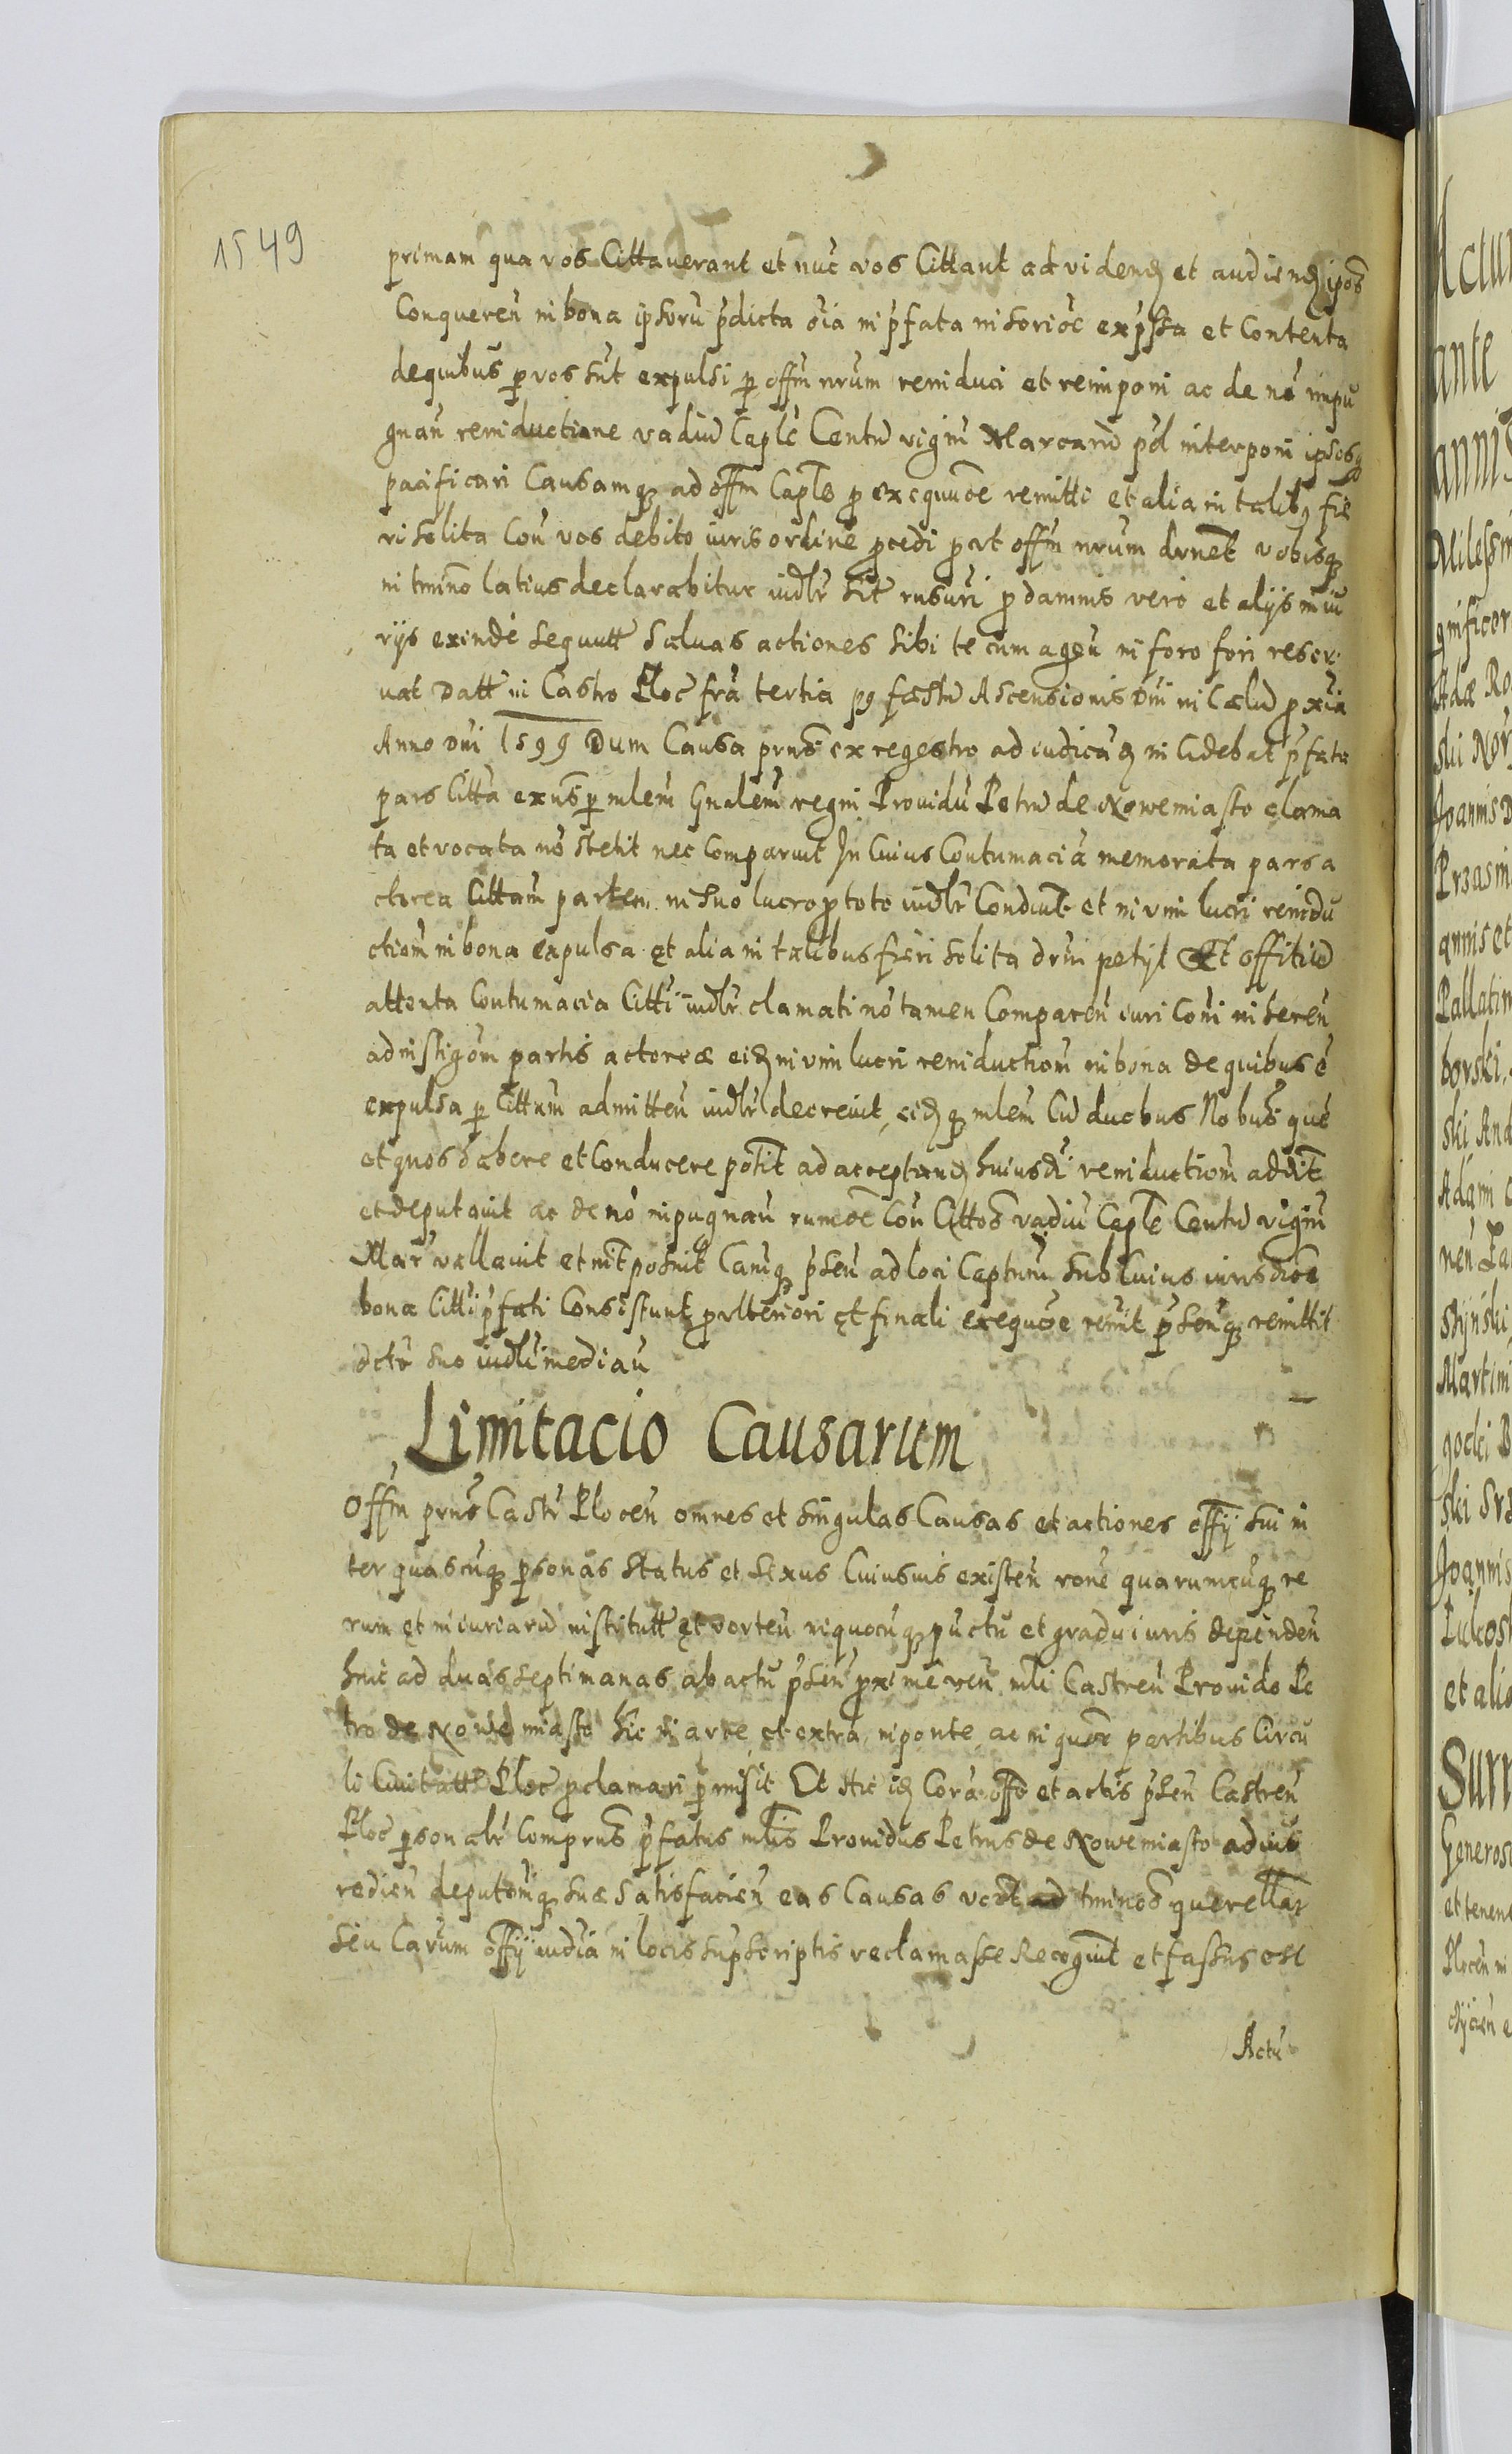 1549
primam qua vos Cittaverant et nuc vos Cittant ad videnđ et audienđ ipos
Conqueren̄ in bona ipsoru p̄dicta oīa in p̄fata insctioē exp̄ssa et Contenta
de quibus p vos sūt expulsi p offm̄ nrum reinduci et reimponi ac de nō impu
gnan̄ reinductione vadiū Caplē Centū viginti Marcarū pđ interponi ipsosq
pacificari Causamq ad offm̄ Caple p exequōe remitti et alia in talibq fie
ri solita Con̄ vos debito iuris ordine pcedi put offm̄ nrum drnet vobisq
in tmino latius declarabitur iudlr̄ sitr̄ rusuri p damnis vero et alijs iniu
rijs exinde sequutt Salvas actiones sibi tecum agen̄ in foro fori reser
vat Datt in Castro Ploc fra tertia pq festū Ascensionis Dni in Cælū pxia
Anno Dni 1599 Dum Causa prns ex regestro ad iudicanđ incidebat p̄fata
pars Citta exns p mlem̄ Gnalem̄ regni Providū Petrū de Nowemiasto clama
ta et vocata nō stetit nec Comparuit In Cuius Contumacia memorata pars a
ctorea Cittam̄ partem in suo lucro p toto iudlr̄ Condnit et in vim lucri reindu
ctiom̄ in bona expulsa et alia in talibus fieri solita drni petyt Et offitiū
attenta Contumacia Citti iudlr̄ clamati nō tamen Comparen̄ iuri Coni inseren̄
ad instigōm partis actoreæ eiđ in vim lucri reinductiom̄ in bona de quibus ē
expulsa p Cittum admitten̄ iudlr̄ decrevit, eiđ q mlem̄ Cū duobus Nobus quē
et quos habere et Conducere potit ad acceptanđ huiusđi reinductiom̄ addit
et deputavit ac de nō impugnan̄ rumōe Con̄ Cittos vadiū Caple Centū vigin̄
Mar vallavit et intposuit Camq p̄sen̄ ad loci Capturm̄ sub Cuius iurisdioē
bona Citti p̄fati Consistunt p ulteriori et finali exequōe remit p̄senq remittit
dctō suo iudli median̄
Limitacio Causarum
Offm̄ prns Castr̄ Plocen̄ omnes et singulas Causas et actiones offy sui in
ter quascuq psonas status et sexus Cuiusvis existen̄ rone quarumcuq re
rum et iniuriarū institutt et vorten̄ in quocuq puctu et gradu iuris dependen̄
hinc ad duas septimanas ab actu p̄sen̄ pxime ven̄ mli Castren̄ Provido Pe
tro de Nowe miasto hic in arce et extra in ponte ac in quor̄ partibus Circu
li Civitatt Ploc pclamari pmisit Et Hic iđ Cora offo et actis p̄sen̄ Castren̄
Ploc psonalr̄ Comprns p̄fatus mlis Providus Petrus de Nowemiasto ad ius
redien̄ deputomq suæ satisfacien̄ eas Causas tminos querellar
seu Carum offy iudia in locis supscriptis reclamasse Recognit et fassus est
Actu